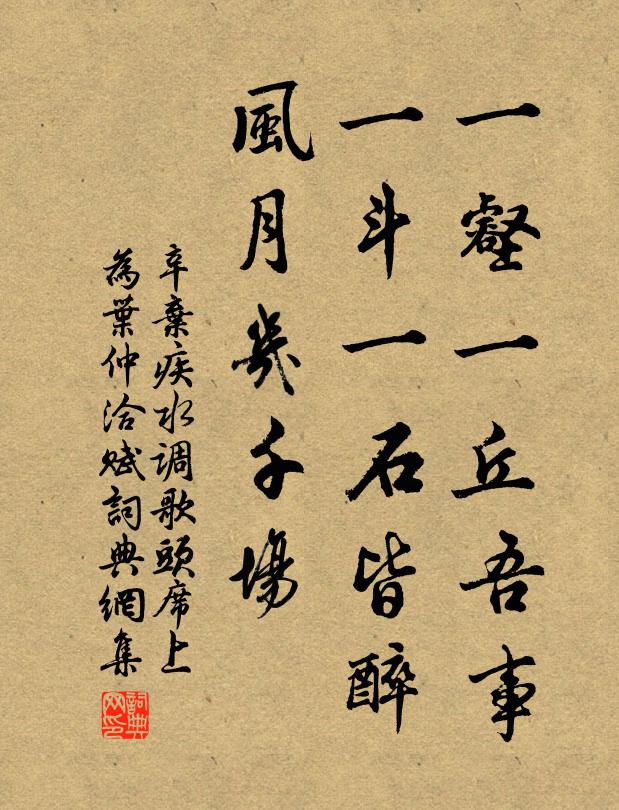 一壑一丘吾事
一斗一石皆醉
風月幾千場
辛棄疾水调歌頭席上
為葉仲洽賦詞典網集
詞典网印